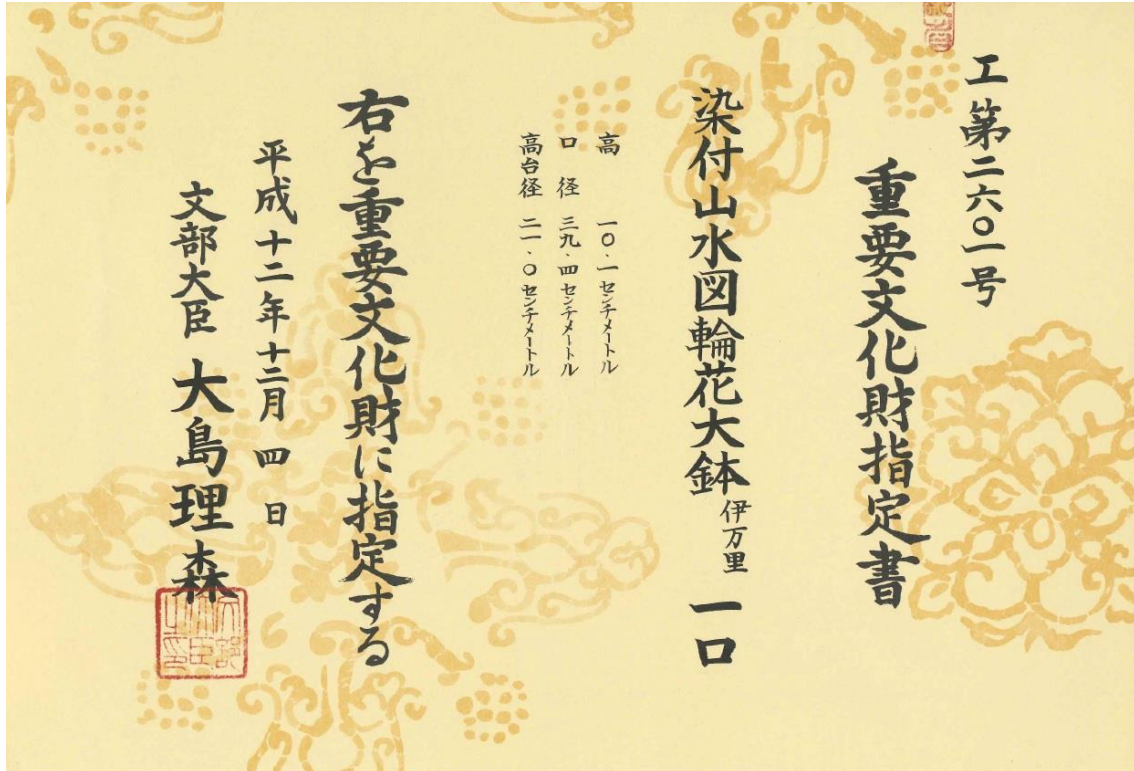 工第二六〇一号
重要文化財指定書
染付山水図輪花大鉢 伊万里 一口
高 一〇・一センチメートル
口径 三九・四センチメートル
高台径 二一・〇センチメートル
右を重要文化財に指定する
平成十二年十二月四日
文部大臣 大島理森
文部大臣之印